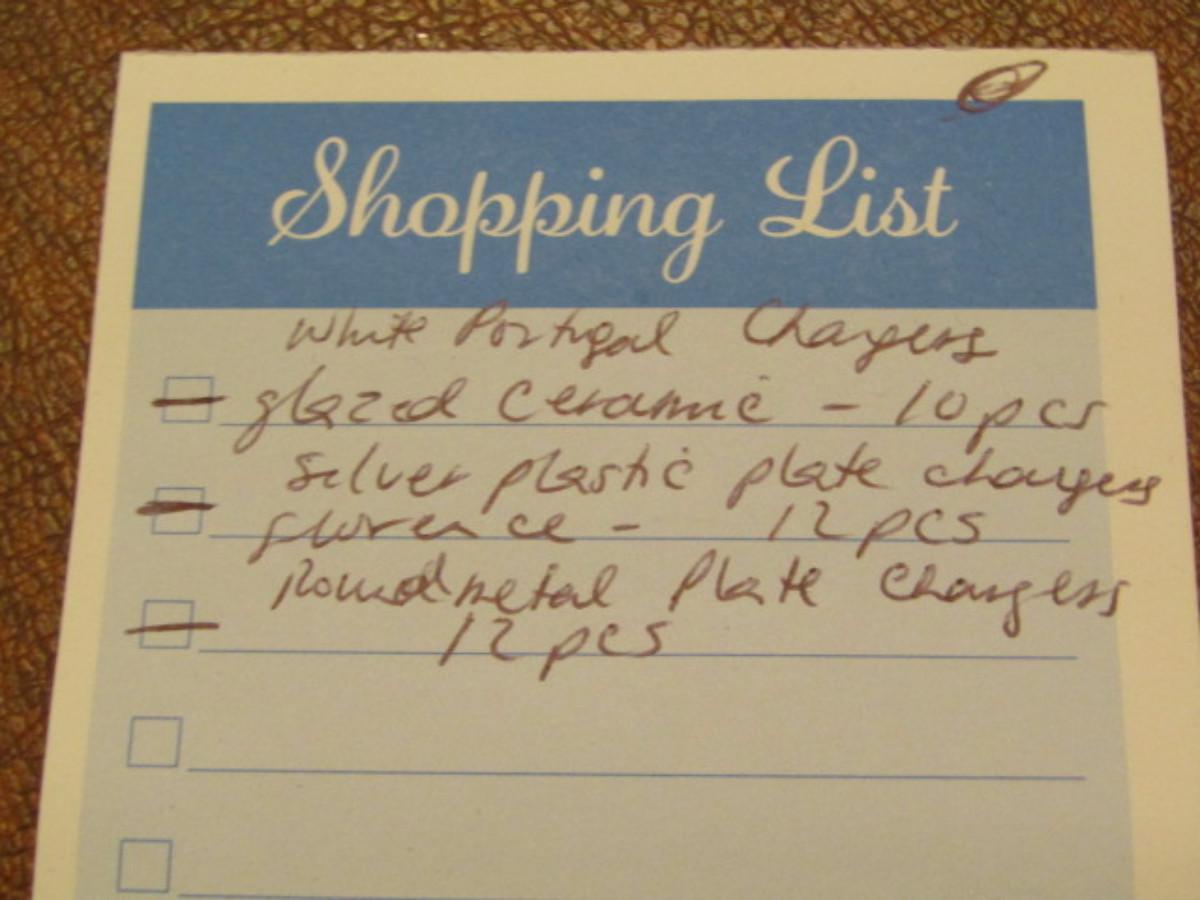 Shopping List
White Portugal Chargers
glazed ceramic - 10 pcs
Silver plastic plate chargers
florence - 12 pcs
Round metal Plate Chargers
12 pcs